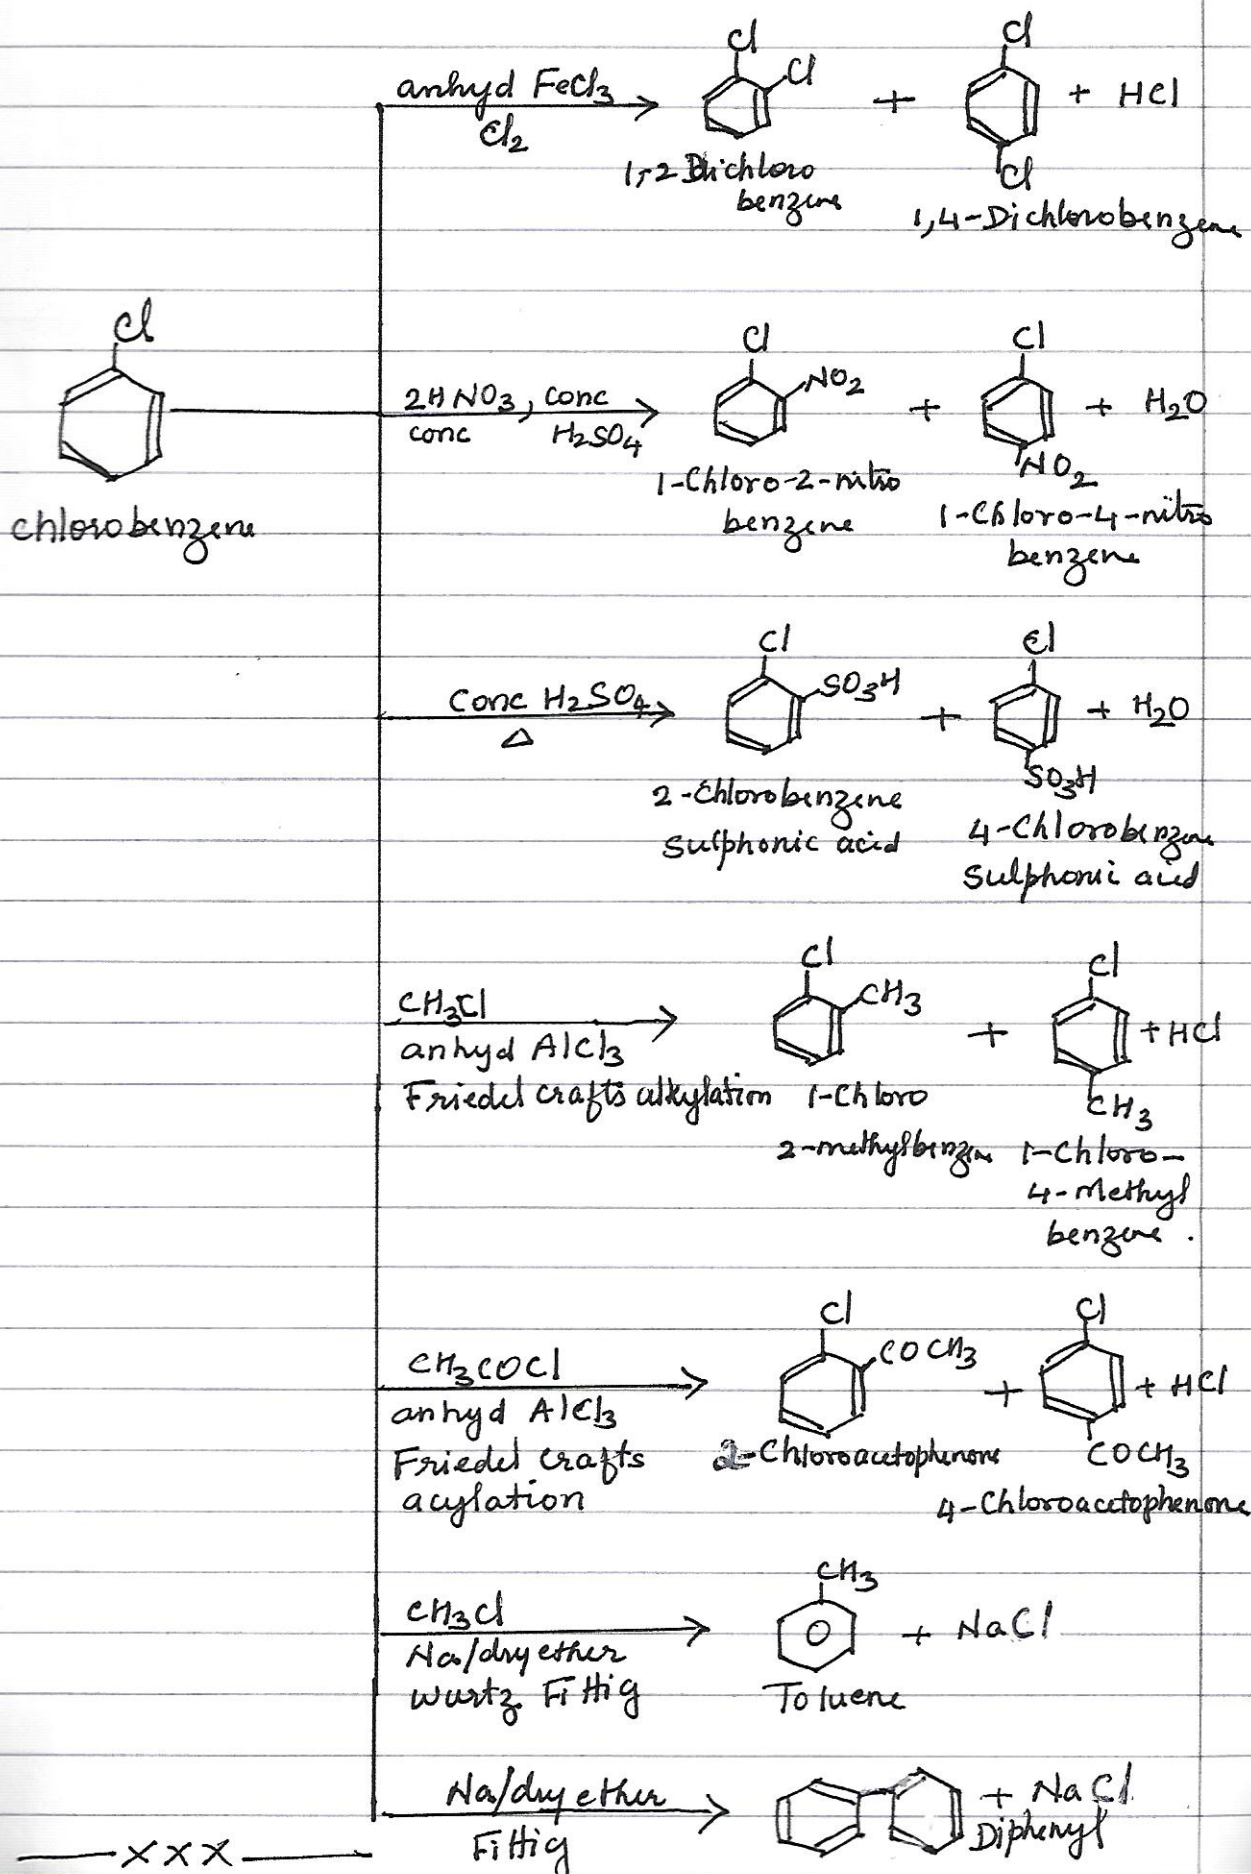 Cl
Cl
Cl
anhyd FeCl3
Cl2
+
+ HCl
Cl
1,2 Dichloro
benzene
1,4-Dichlorobenzene
Cl
chlorobenzene
Cl
Cl
2HNO3, conc
conc
H2SO4
NO2
+
+ H2O
NO2
1-Chloro-2-nitro
benzene
1-Chloro-4-nitro
benzene
Cl
Cl
Conc H2SO4
Δ
SO3H
+
+ H2O
SO3H
2-Chlorobenzene
Sulphonic acid
4-Chlorobenzene
Sulphonic acid
Cl
Cl
CH3Cl
anhyd AlCl3
Friedel crafts alkylation
CH3
+
+ HCl
CH3
1-Chloro
2-methylbenzene
1-Chloro-
4-Methyl
benzene.
Cl
Cl
CH3COCl
anhyd AlCl3
Friedel crafts
acylation
COCH3
+
+ HCl
COCH3
2-Chloroacetophenone
4-Chloroacetophenone
CH3
CH3Cl
Na/dry ether
Wurtz Fittig
+ NaCl
Toluene
Na/dry ether
Fittig
+ NaCl
Diphenyl
XXX